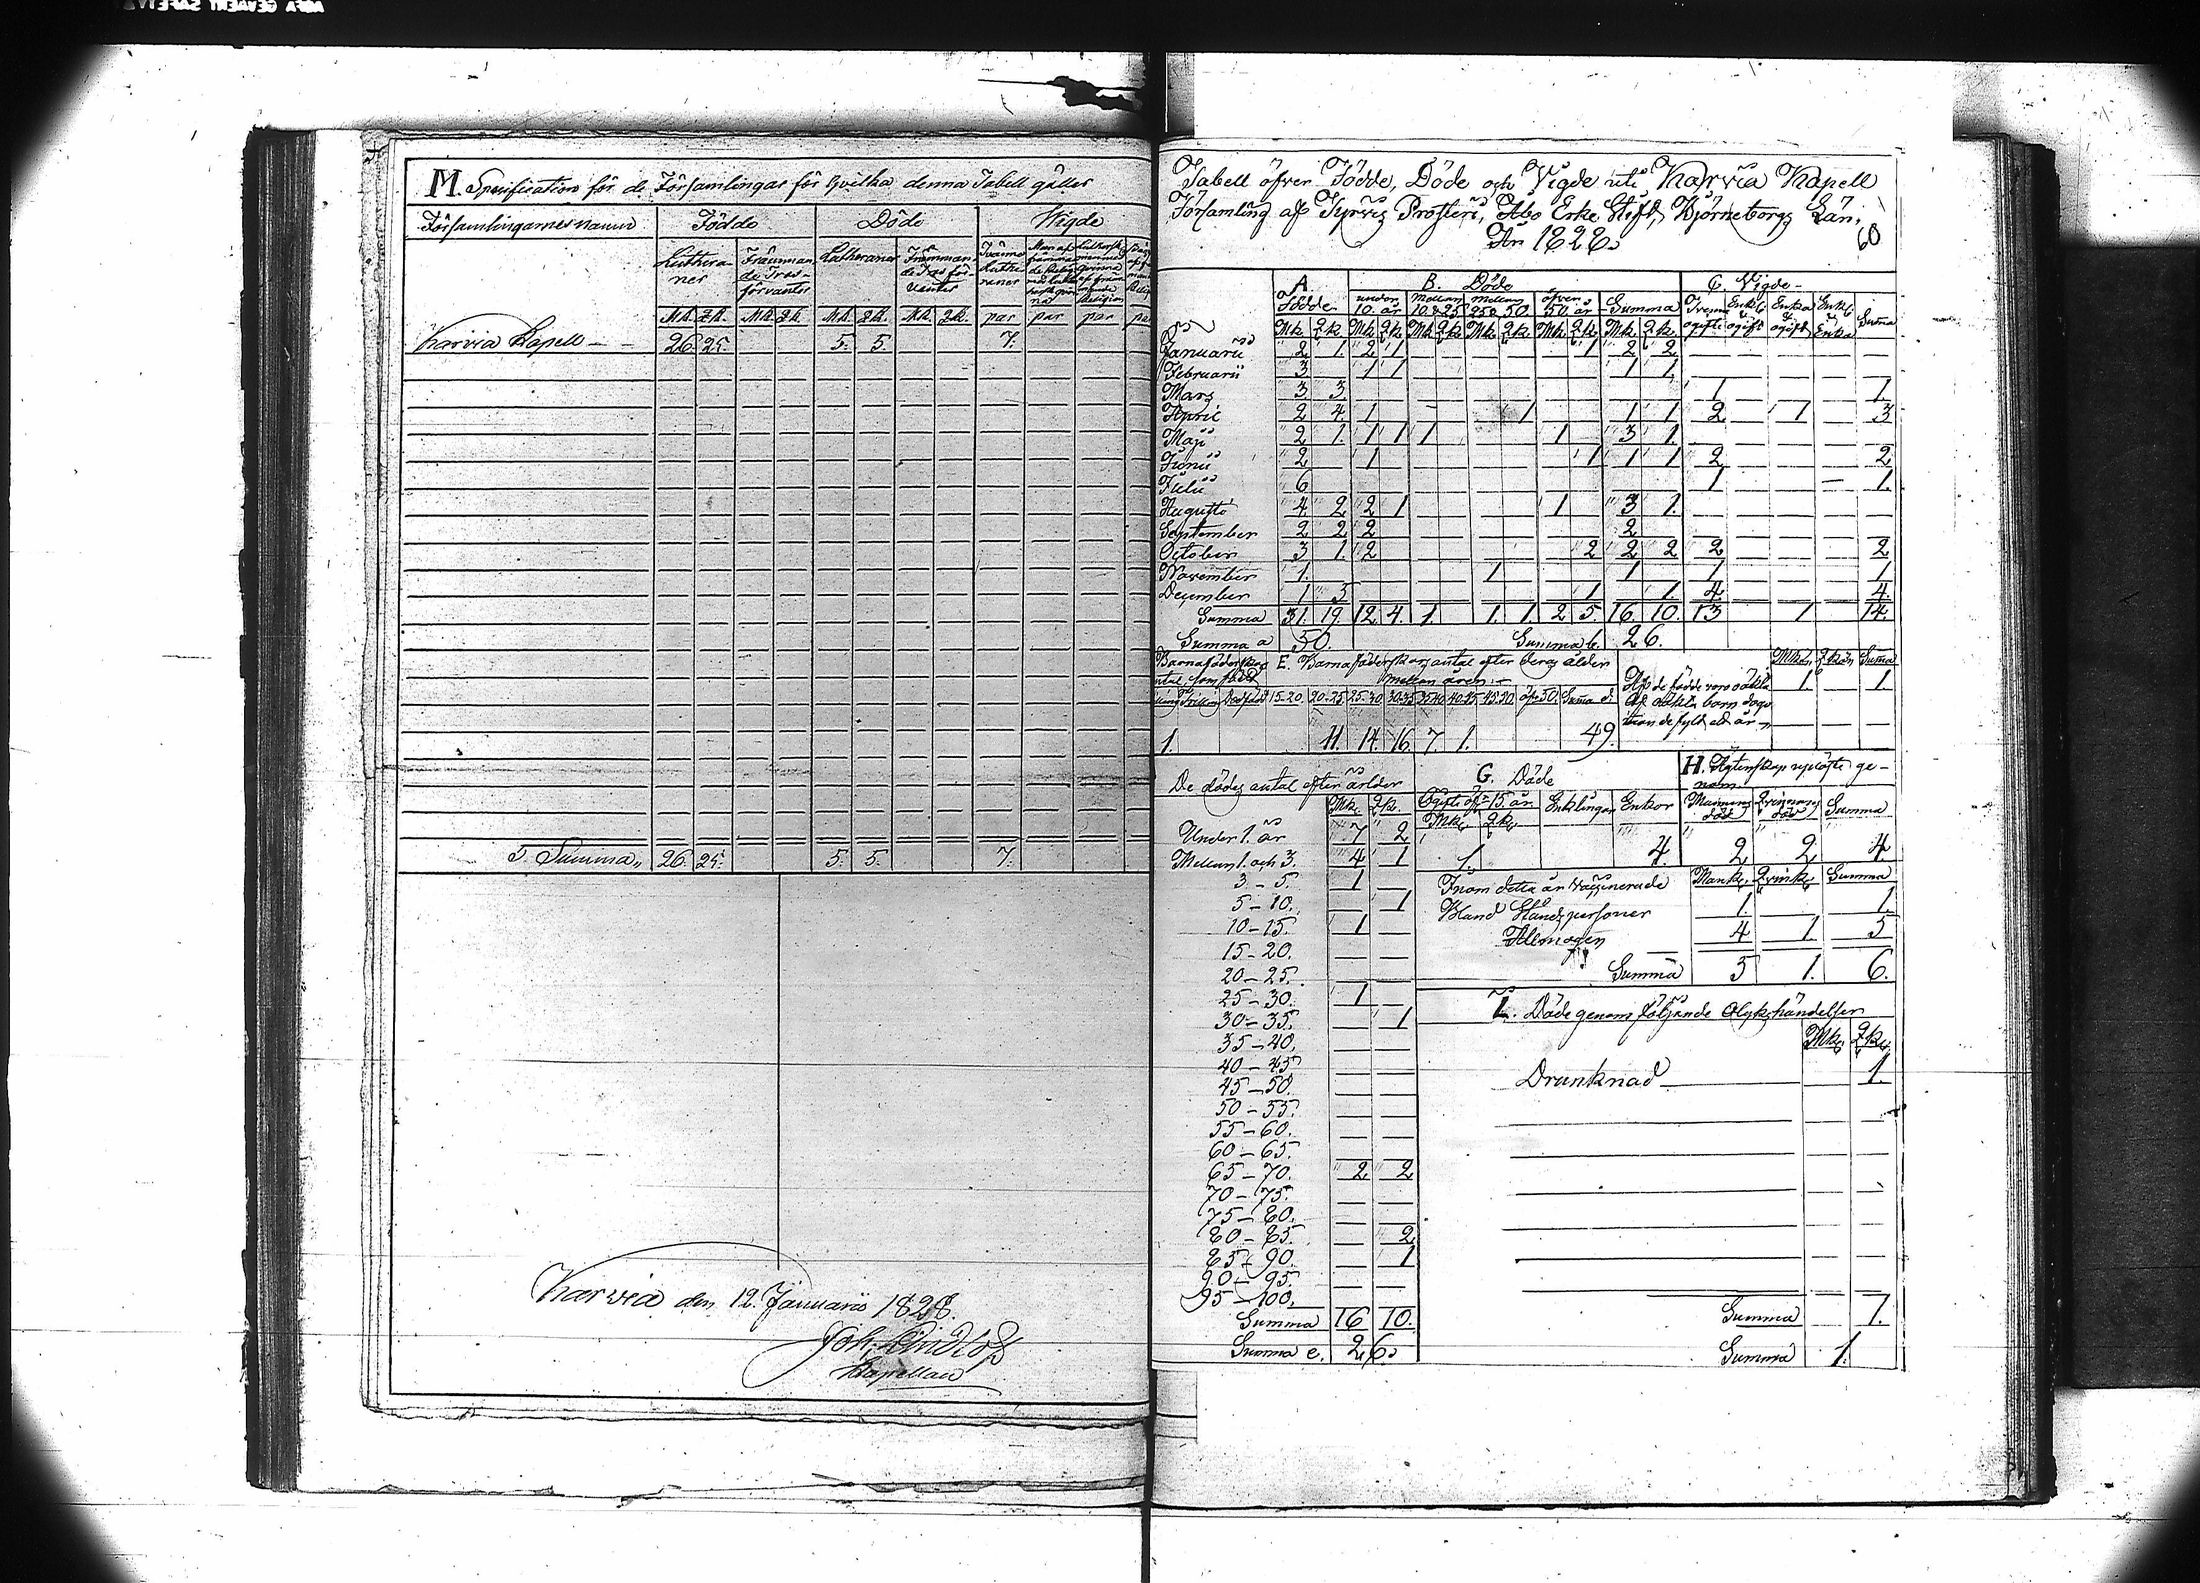 M. Specification för de Församlingar för hvilka denna Tabell gäller
Församlingarnes namn Födde Döde Wigde
Luthera-ner Främman-de Tros-förvanter Lutheraner Främman-de Tros för-vanter
Mk. Qk. Mk. Qk. Mk. Qk. Mk. Qk. par par par
Karvia Kapell 26. 25. 5. 5. 7.
Summa 26. 25. 5. 5. 7.
Karvia den 12. Januarii 1828.
Joh. Lindlöf
Kapellan
Tabell öfver Födde, Döde och Vigde uti Karvia Kapell
Församling af Tyrvis Prosteri, Åbo Erke Stift, Björneborgs Län,
År 1828.
60
A. Födde B. Döde C. Vigde
under 10. år Mellan 10 & 25 Mellan 25 & 50 öfver 50 år Summa
Mk. Qk. Mk. Qk. Mk. Qk. Mk. Qk. Mk. Qk. Mk. Qk. Summa
Januarii 2 1. 2 1 1 2 2
Februarii 3 1 1 1 1.
Mars 3 3 1 1.
April 2 4 1 1 1 1 2 1 3
Maji 2 1. 1 1 1 1 3 1.
Junii 2 1 1 1 1 2 2
Julii 6 1 1.
Augusti 4 2 2 1 1 3 1.
September 2 2 2 2
October 3 1. 2 2 2 2 2 2
November 1. 1 1 1 1
December 1 5 1 1. 4 4
Summa 31. 19. 12. 4. 1. 1. 1. 2 5. 16. 10. 13 1 14.
Summa a 50. Summa b. 26.
E. Barnaföderskors antal efter deras ålder
mellan åren
15-20. 20-25 25-30 30-35 35-40 40-45 45-50 öfv. 50. Summa d.
1. 11. 14. 16. 7 1. 49.
Mkön Qkön Summa
Af de födde voro oäkta 1. 1.
Af oäkta barn dogo
innan de fylt ett år
De dödas antal efter ålder
Mk. Qk.
Under 1. år 7 2
Mellan 1. och 3. 4 1
3 - 5. 1
5 - 10. 1
10 - 15. 1
15 - 20.
20 - 25.
25 - 30. 1
30 - 35. 1
35 - 40.
40 - 45
45 - 50.
50 - 55.
55 - 60.
60 - 65.
65 - 70. 2 2
70 - 75.
75 - 80.
80 - 85. 2
85 - 90. 1
90 - 95.
95 - 100.
Summa 16 10.
Summa e. 26.
G. Döde
Ogifte öfv. 15 år Enklingar Enkor
Mk. Qk.
1. 4
H. Ägtenskap uplöste ge-
nom
Mannens död Qvinnans död Summa
2 2 4
Inom detta år vaccinerade Mank. Qvink. Summa
Bland Ståndspersoner 1. 1.
Allmogen 4 1. 5
Summa 5 1. 6.
L. Döde genom följande Olykshändelser
Mk. Qk.
Drunknad 1.
Summa 1.
Summa 1.